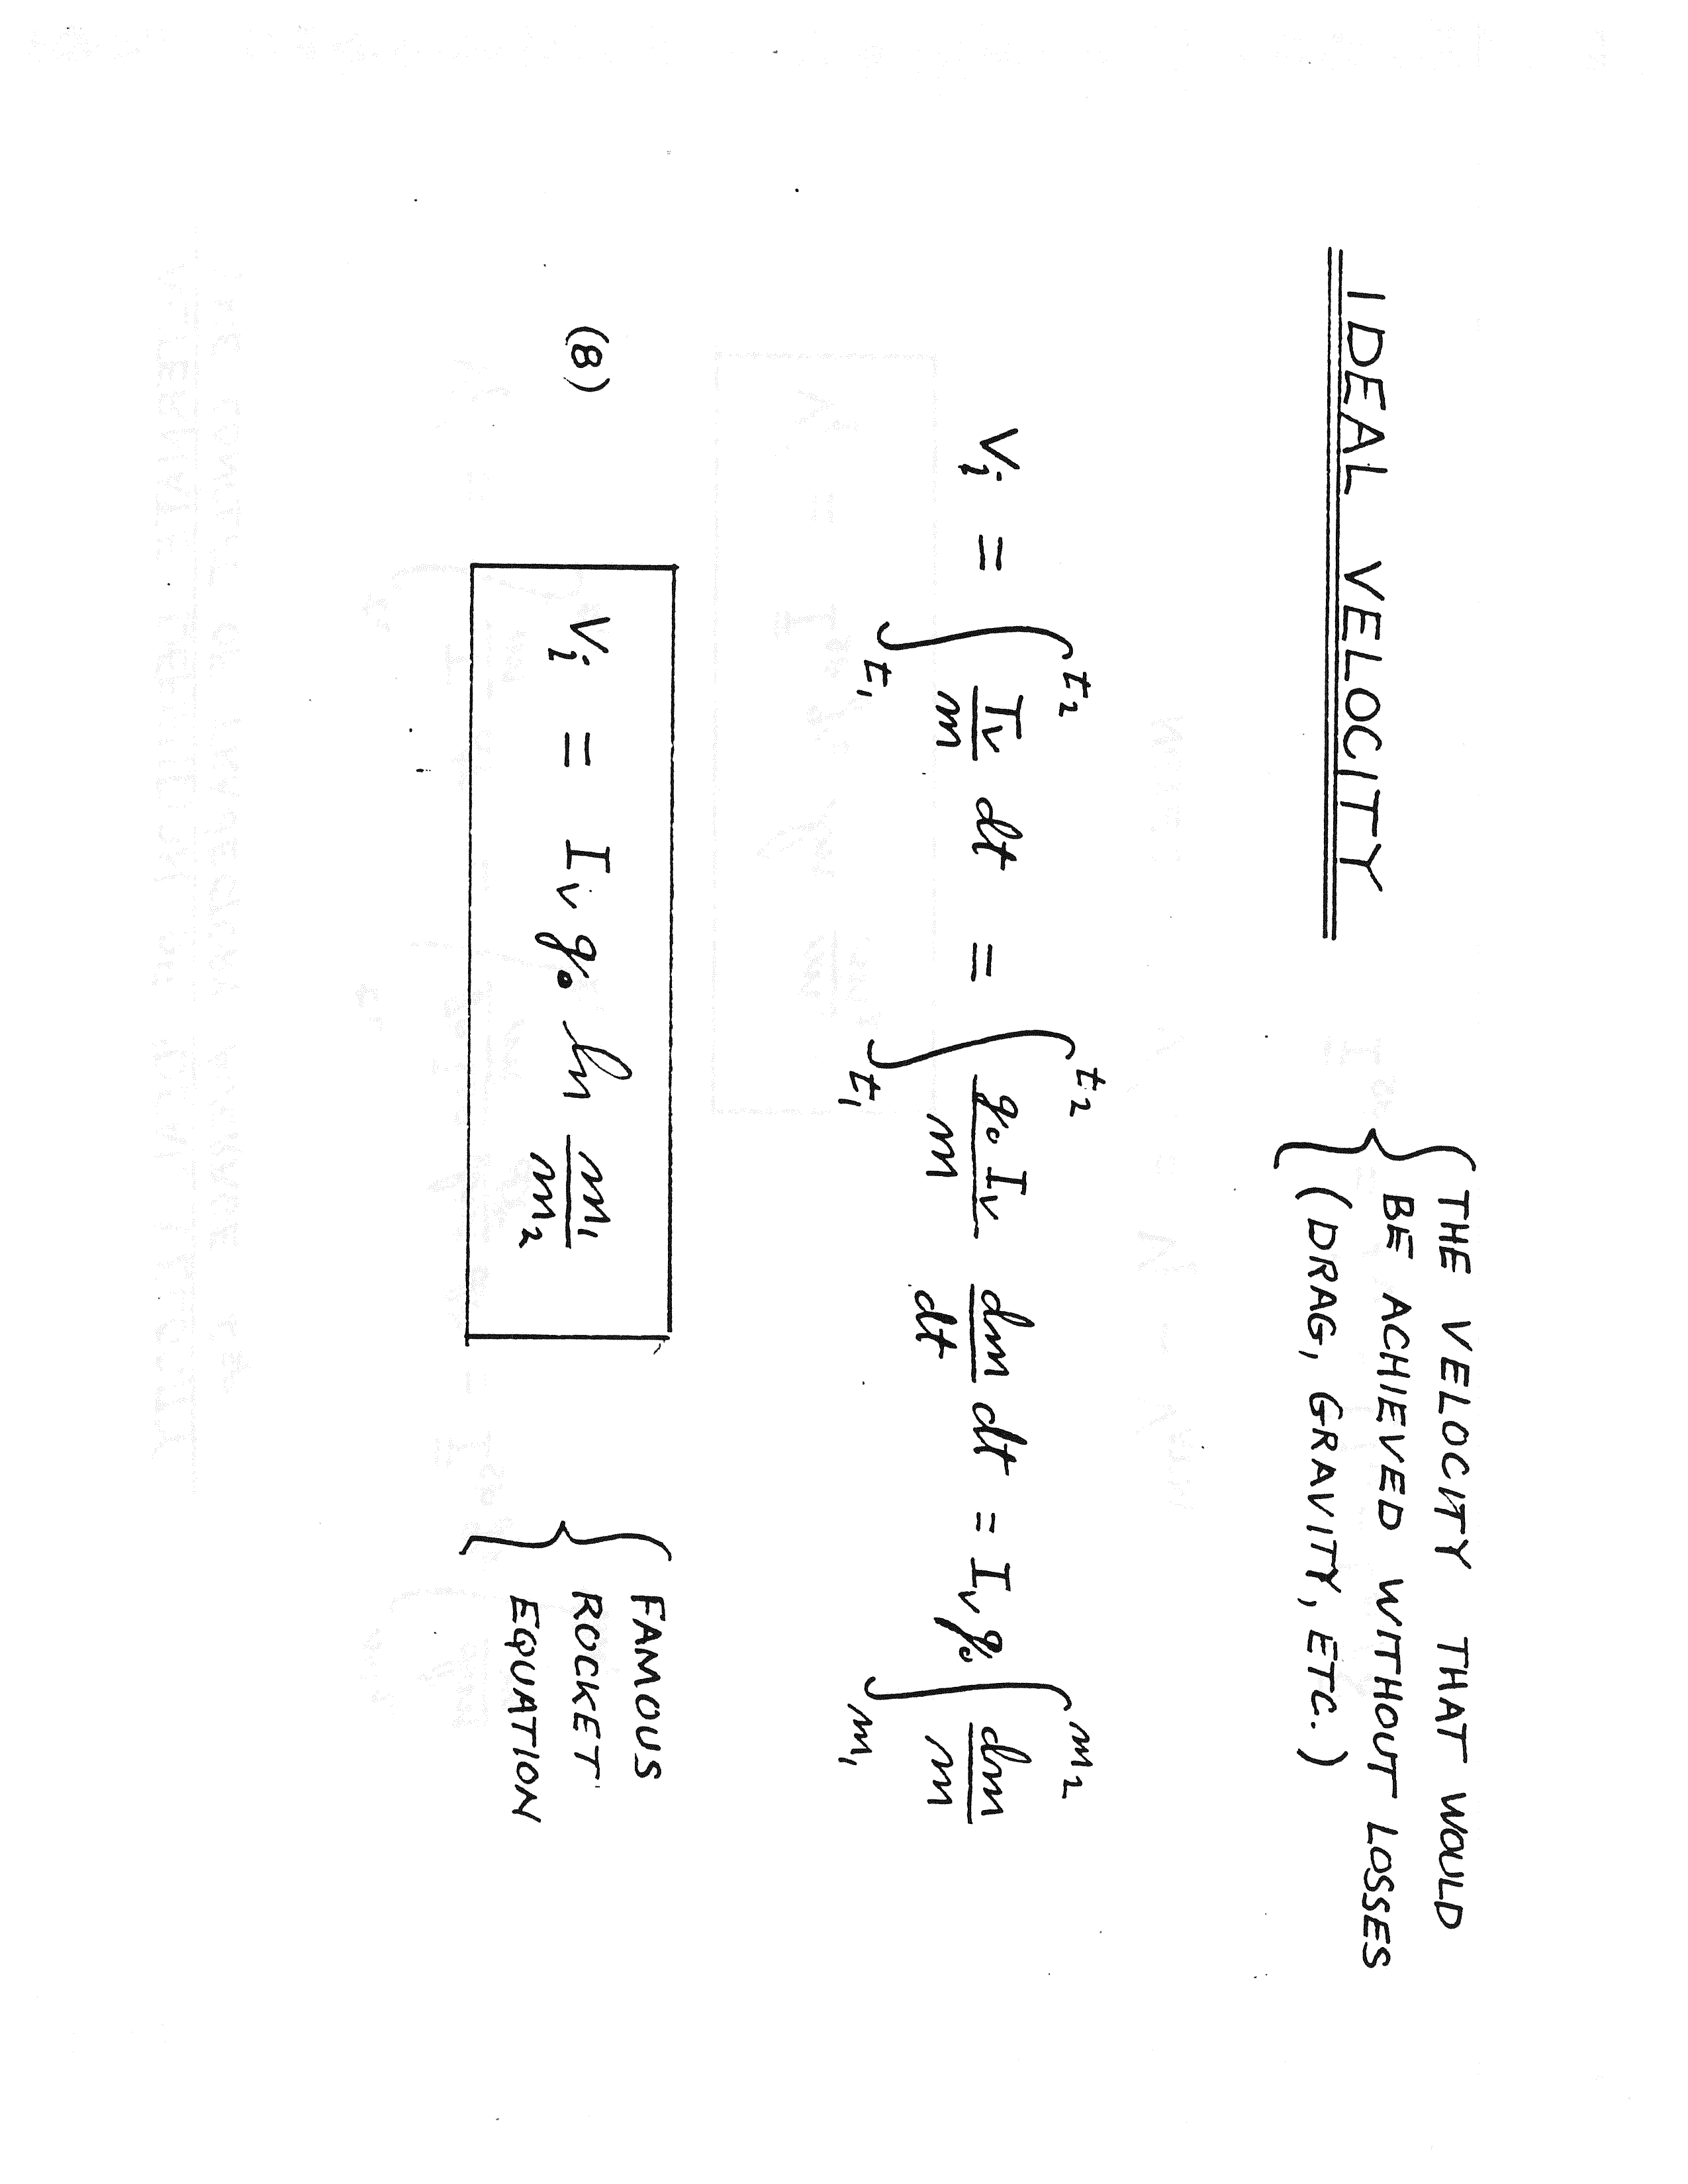 IDEAL VELOCITY { THE VELOCITY THAT WOULD
BE ACHIEVED WITHOUT LOSSES
(DRAG, GRAVITY, ETC.)
Vi = ∫t1^t2 Tv/m dt = ∫t1^t2 g0Iv/m dm/dt dt = Ivg0 ∫m1^m2 dm/m
(8) Vi = Ivg0 ln m1/m2 { FAMOUS
ROCKET
EQUATION